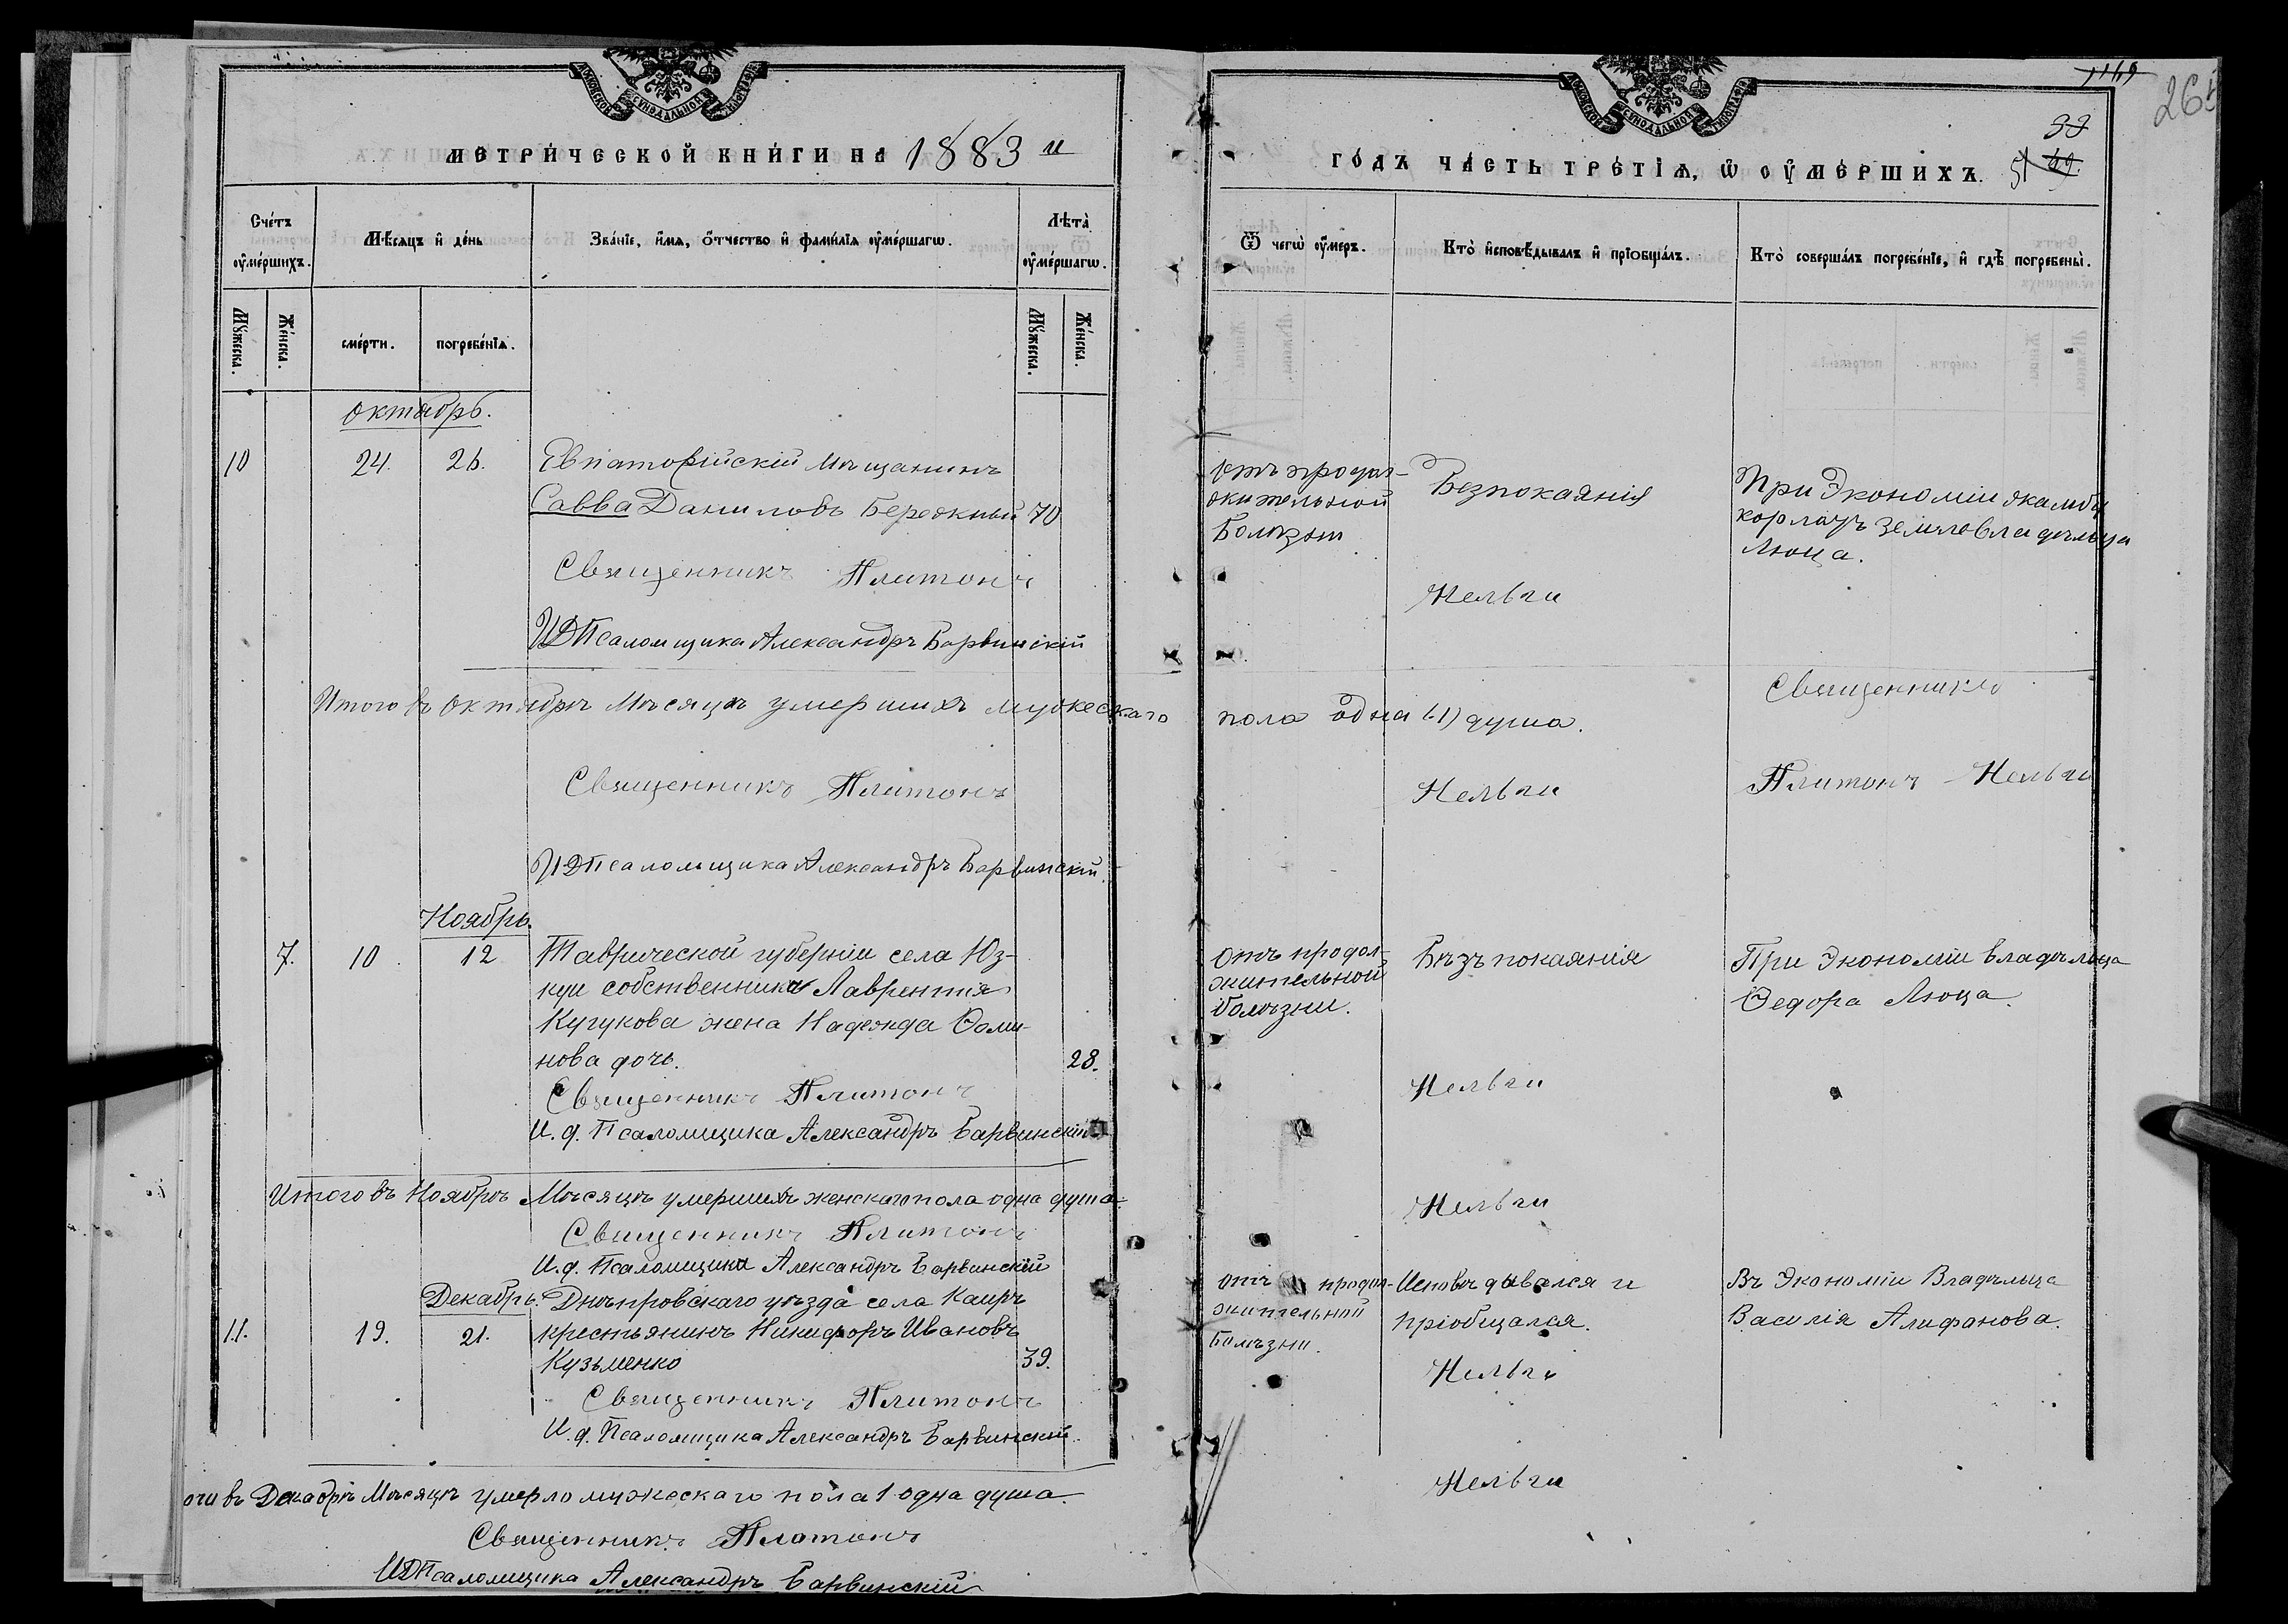 МОСКОВСКОЙ СУНОДАЛЬНОЙ ТИПОГРАФІИ
МЕТРИЧЕСКОЙ КНИГИ НА 1883 й
Счетъ оумершихъ.
Мѣсяцъ и день
Званіе, имя, отчество и фамилія оумершагѡ.
Лѣта оумершагѡ.
Мꙋжеска.
Женска.
смерти.
погребенія.
Мꙋжеска.
Женска.
Октябрь.
10 24. 26. Евпаторійскій Мѣщанинъ
Савва Даниловъ Бережный 70
Священникъ Платонъ
ИДПсаломщика Александръ Барвинскій
Итого въ Октябрѣ Мѣсяцѣ умершихъ мужескаго
Священникъ Платонъ
ИДПсаломщика Александръ Барвинскій.
Ноябрь.
7. 10. 12 Таврической губерніи села Юз-
куи собственника Лаврентія
Кугукова жена Надежда Ѳоми-
нова дочь. 28.
Священникъ Платонъ
И.д. Псаломщика Александръ Барвинскій
Итого въ Ноябрѣ Мѣсяцѣ умершихъ женскаго пола одна душа.
Священникъ Платонъ
И.д. Псаломщика Александръ Барвинскій
Декабрь. Днѣпровскаго уѣзда села Каирѣ
11. 19. 21. крестьянинъ Никифоръ Ивановъ
Кузьменко 39.
Священникъ Платонъ
И.д. Псаломщика Александръ Барвинскій.
ого въ Декабрѣ Мѣсяцѣ умерло мужескаго пола 1 одна душа.
Священникъ Платонъ
ИДПсаломщика Александръ Барвинскій
МОСКОВСКОЙ СУНОДАЛЬНОЙ ТИПОГРАФІИ
ГОДЪ ЧАСТЬ ТРЕТІЯ, Ѡ ОУМЕРШИХЪ.
51
Ѿ чегѡ оумеръ.
Кто исповѣдывалъ и пріобщалъ.
Кто совершалъ погребеніе, и гдѣ погребены.
отъ продол-
жительной
Болѣзни
Безпокаянія
При Экономіи
землевладѣльца
Люца.
Нельги
пола одна (1) душа.
Священникъ
Нельги
Платонъ Нельги
Отъ продол-
жительной
болѣзни.
Безъ покаянія
При Экономіи владѣльца
Ѳедора Люца.
Нельги
Нельги
отъ продол-
жительной
Болѣзни.
Исповѣдывался и
пріобщался.
Въ Экономіи Владѣльца
Василія Алифанова.
Нельги
Нельги